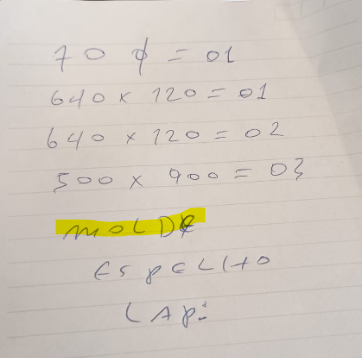 70 ϕ = 01
640 x 120 = 01
640 x 120 = 02
500 x 900 = 03
MOLDE
ESPELHO
LAP: